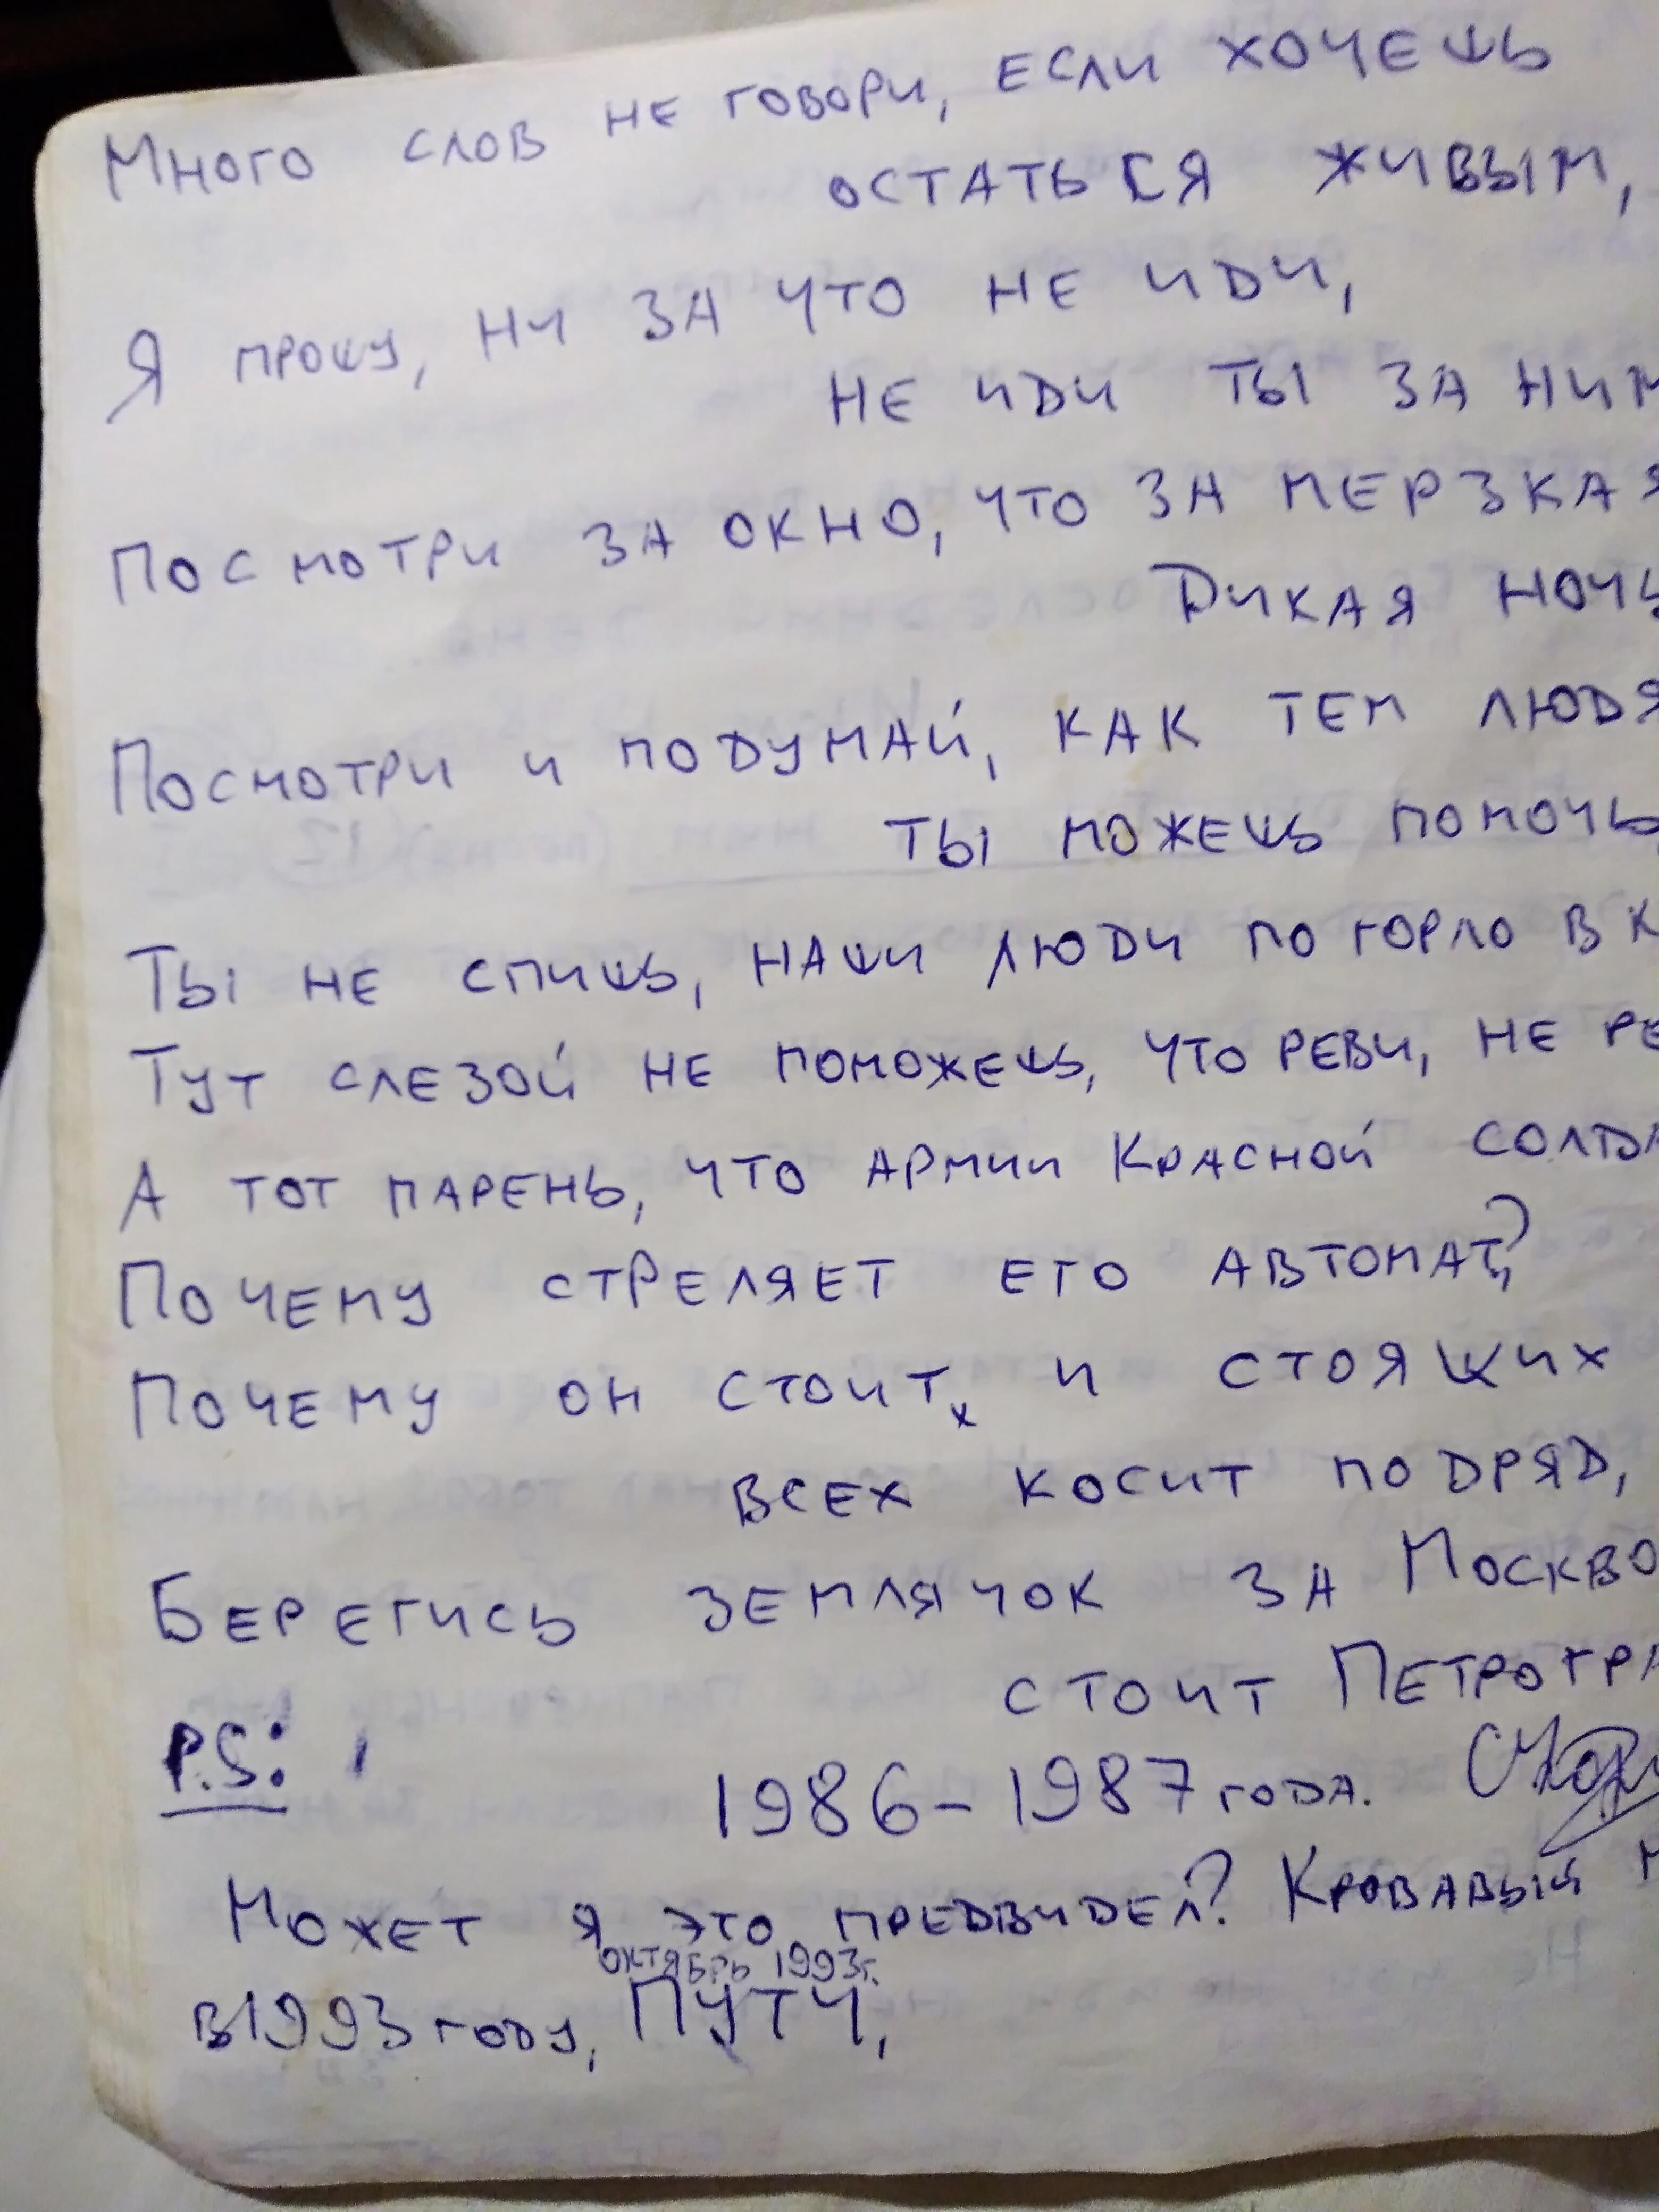 Много слов не говори, если хочешь
остаться живым,
Я прошу, ни за что не иди,
не иди ты за ним
Посмотри за окно, что за мерзкая
Дикая ночь
Посмотри и подумай, как тем людя
ты можешь помочь
Ты не спишь, наши люди по горло в к
Тут слезой не поможешь, что реви, не ре
А тот парень, что армии Красной солда
Почему стреляет его автомат,?
Почему он стоит, и стоящих
всех косит подряд,
Берегись землячок за Москво
стоит Петрогра
P.S:
1986-1987 года.
Может я это предвидел? Кровавый
октябрь 1993г.
в 1993 году, ПУТЧ,